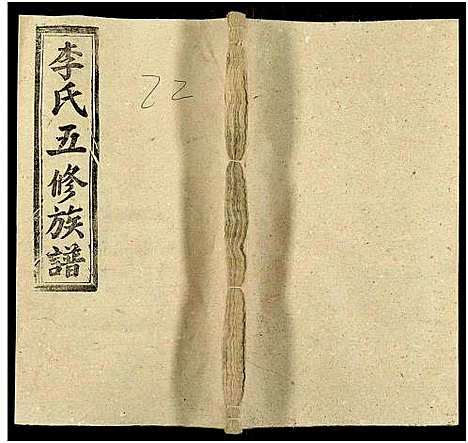 李氏五修族譜
22